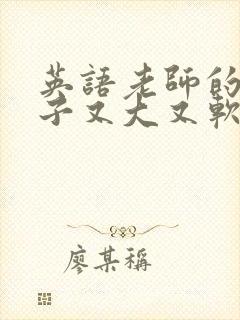 英語老師的
子又大又軟
廖某稱